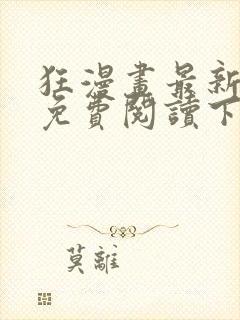 狂漫畫最新
免費閱讀下
莫離